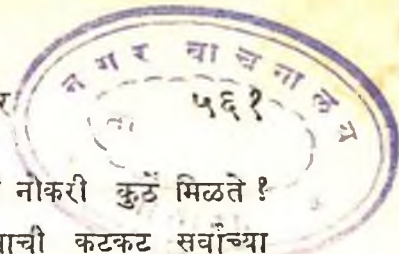 र
नगर वाचनालय
५६१
नोकरी कुठें मिळते ?
ाची कटकट सर्वांच्या